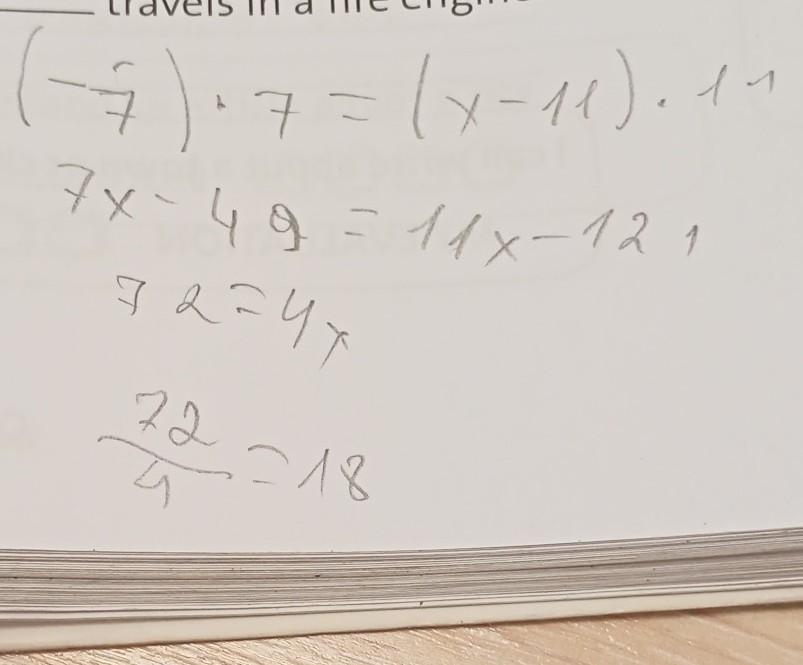 travels in a fire engin
(-7) · 7 = (x-11) · 11
7x - 49 = 11x - 121
72 = 4x
72/4 = 18